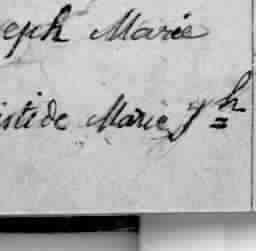 eph Marie
istide Marie Jh